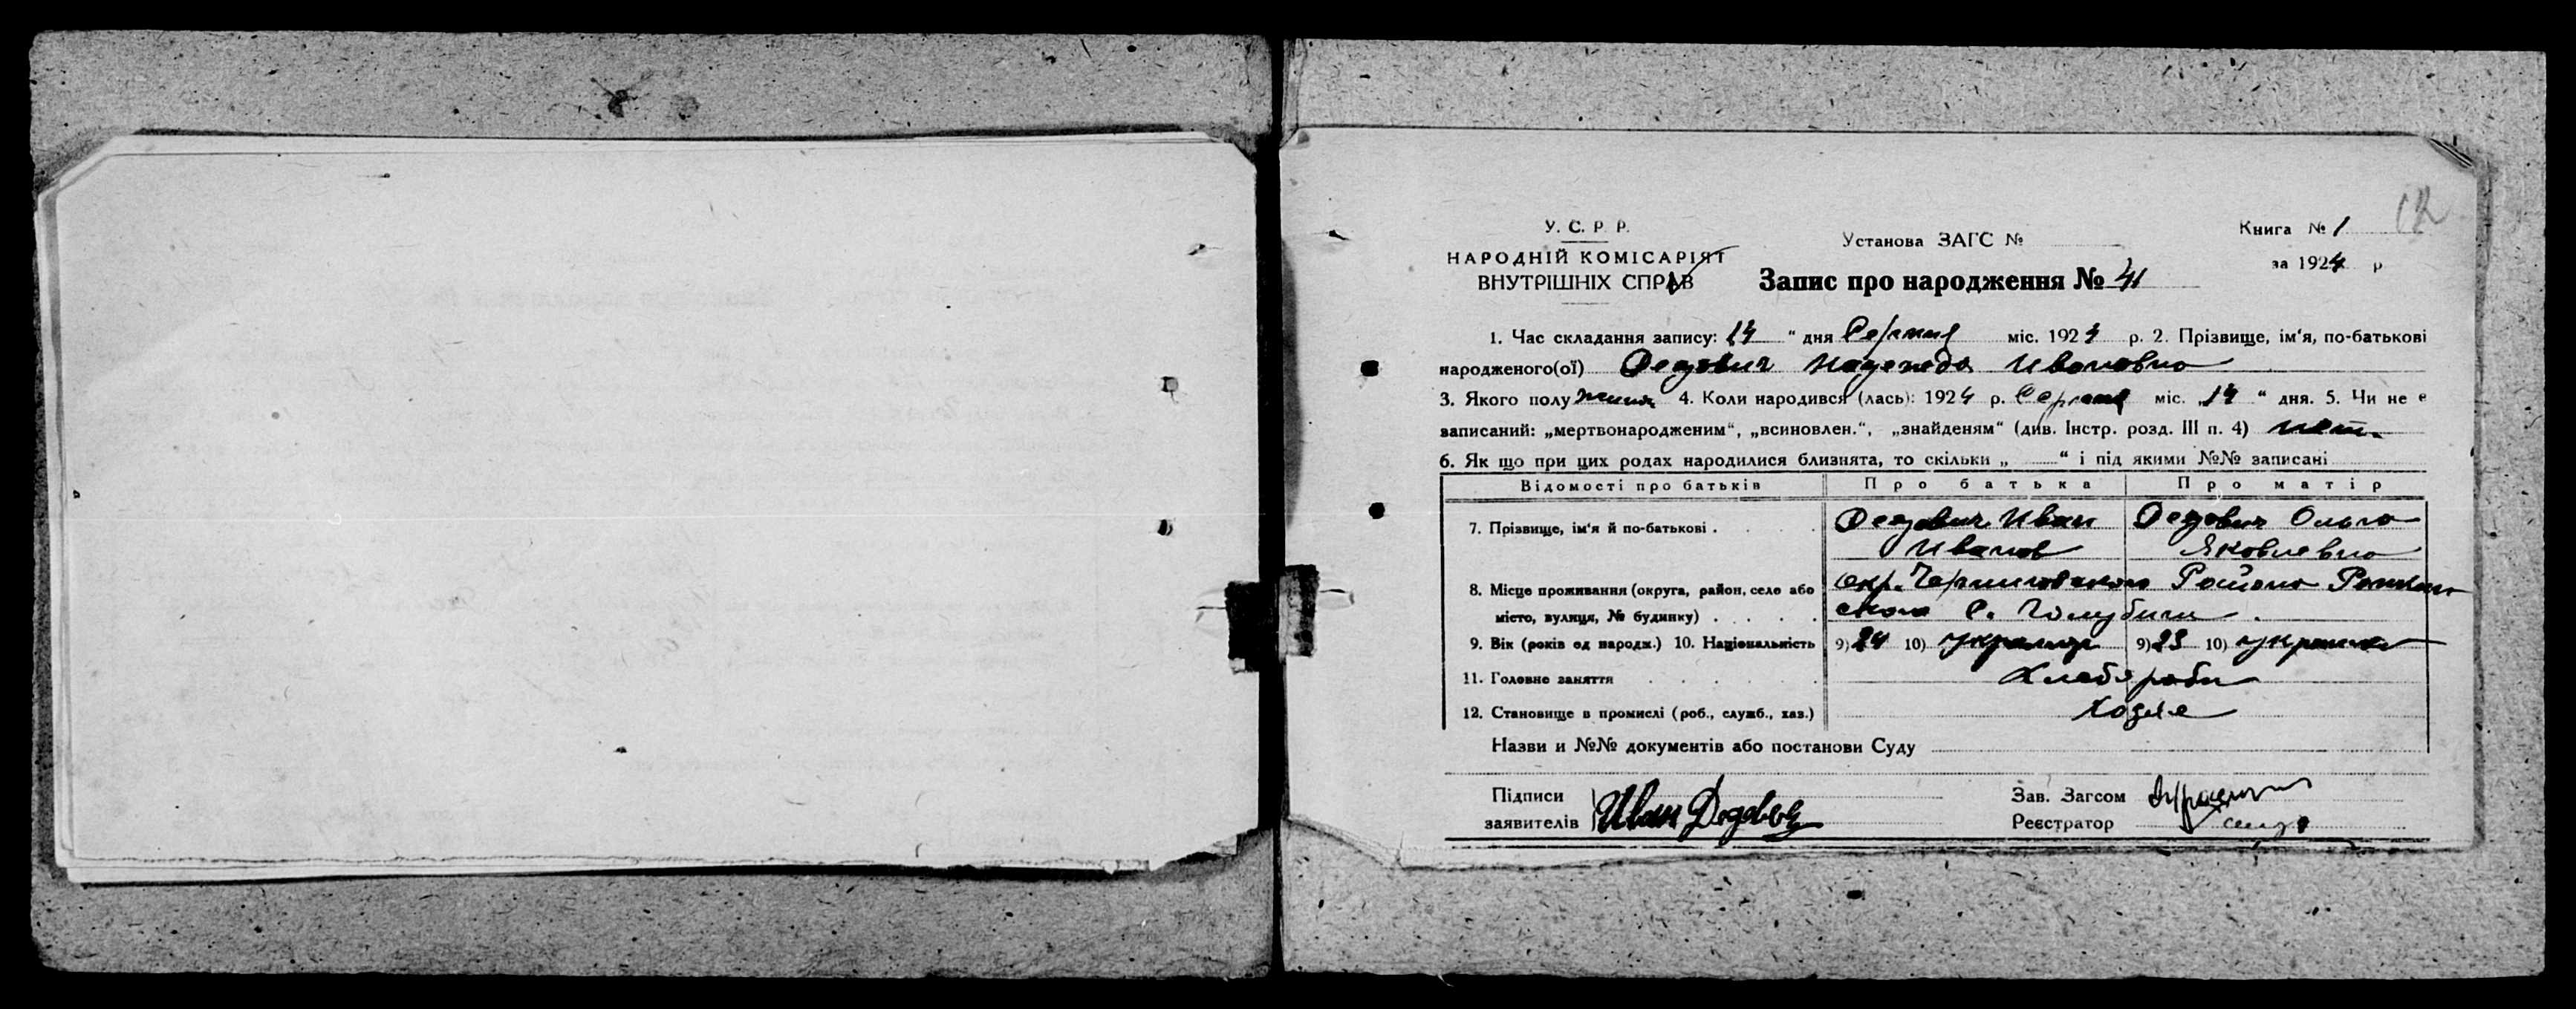 12
У. С. Р. Р.
НАРОДНІЙ КОМІСАРІЯТ
ВНУТРІШНІХ СПРАВ
Установа ЗАГС №
Книга № 1
за 1924 р
Запис про народження № 41
1. Час складання запису: 14 " дня Серпня міс. 1924 р. 2. Прізвище, ім'я, по-батькові
народженого(ої) Дедович Надежда Ивановна
3. Якого полу 4. Коли народився (лась): 1924 р. Серпня міс. „14 " дня. 5. Чи не є
записаний: „мертвонародженим", „всиновлен.", „знайденям" (див. Інстр. розд. III п. 4) нет.
6. Як що при цих родах народилися близнята, то скільки „ " і під якими №№ записані
Відомості про батьків Про батька Про матір
7. Прізвище, ім'я й по-батькові . . . . Дедович Иван Дедович Ольга
Иванов Яковлевна
8. Місце проживання (округа, район, село або окр. Черниговского Района Роиш
місто, вулиця, № будинку) . . . . ского С. Голубичи
9. Вік (років од народж.) 10. Національність 9) 24 10) украинц 9) 23 10) украинка
11. Головне заняття . . . . . Хлебороби
12. Становище в промислі (роб., служб., хаз.) Хозяе
Назви и №№ документів або постанови Суду
Підписи
заявителів Иван Дедович
Зав. Загсом
Реєстратор